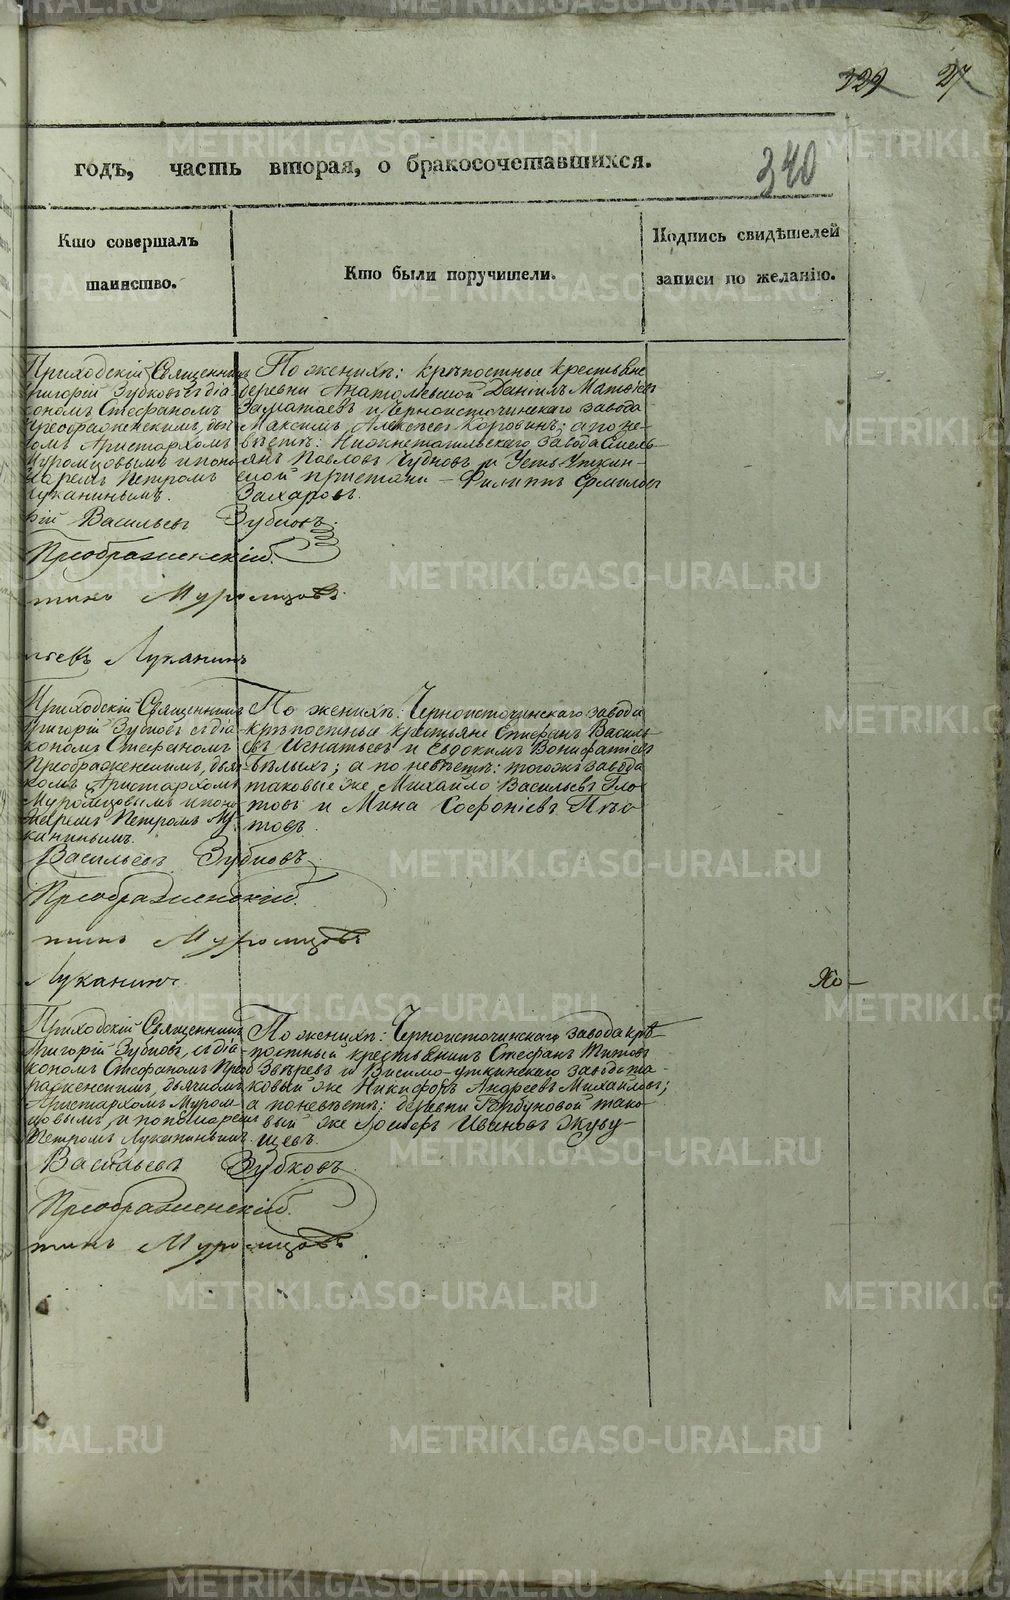 329 27
340
годъ, часть вторая, о бракосочетавшихся.
Кто совершалъ таинство.
Кто были поручители.
Подпись свидѣтелей записи по желанію.
Приходскій Священникъ
Григорій Зубковъ съ діа-
кономъ Стефаномъ
Преображенскимъ, дьяч
комъ Аристархомъ
Муромцовымъ и поно
маремъ Петромъ
Луканинымъ.
По женихѣ: крѣпостные крестьяне
деревни Анатольевской Даніилъ Матѳіевъ
и Черноисточинскаго завода
Максимъ Алексѣевъ Коровинъ; а по не-
вѣстѣ: Нижнетагильскаго завода Емель-
янъ Павловъ Чудновъ и Усть-Уткин-
ской пристани – Филиппъ Ермиловъ
Захаровъ.
рій Васильевъ Зубковъ.
Преображенскій.
Муромцовъ.
Луканинъ
Приходскій Священникъ
Григорій Зубковъ съ діа-
кономъ Стефаномъ
Преображенскимъ, дьяч-
комъ Аристархомъ
Муромцовымъ и поно
маремъ Петромъ Лу-
канинымъ.
По женихѣ: Черноисточинскаго завода
крѣпостные крестьяне Епифанъ Василь-
евъ Игнатьевъ и Евдокимъ Вонифатіевъ
Бѣлыхъ; а по невѣстѣ: тогожъ завода
таковые же Михайло Васильевъ Гло-
товъ и Мина Софоніевъ Пло-
товъ.
Васильевъ Зубковъ.
Преображенскій.
Муромцовъ
Луканинъ.
Хо-
Приходскій Священникъ
Григорій Зубковъ, съ діа-
кономъ Стефаномъ Преоб
раженскимъ, дьячкомъ
Аристархомъ Муром-
цовымъ, и пономаремъ
Петромъ Луканинымъ.
По женихѣ: Черноисточинскаго завода крѣ-
постный крестьянинъ Стефанъ Титовъ
Звѣревъ и Висимо-уткинскаго завода та-
ковый же Никифоръ Андреевъ Михайловъ;
а по невѣстѣ: деревни Горбуновой тако-
вый же Ивановъ Якуву-
щевъ.
Васильевъ Зубковъ.
Преображенскій.
Муромцовъ
METRIKI.GASO-URAL.RU